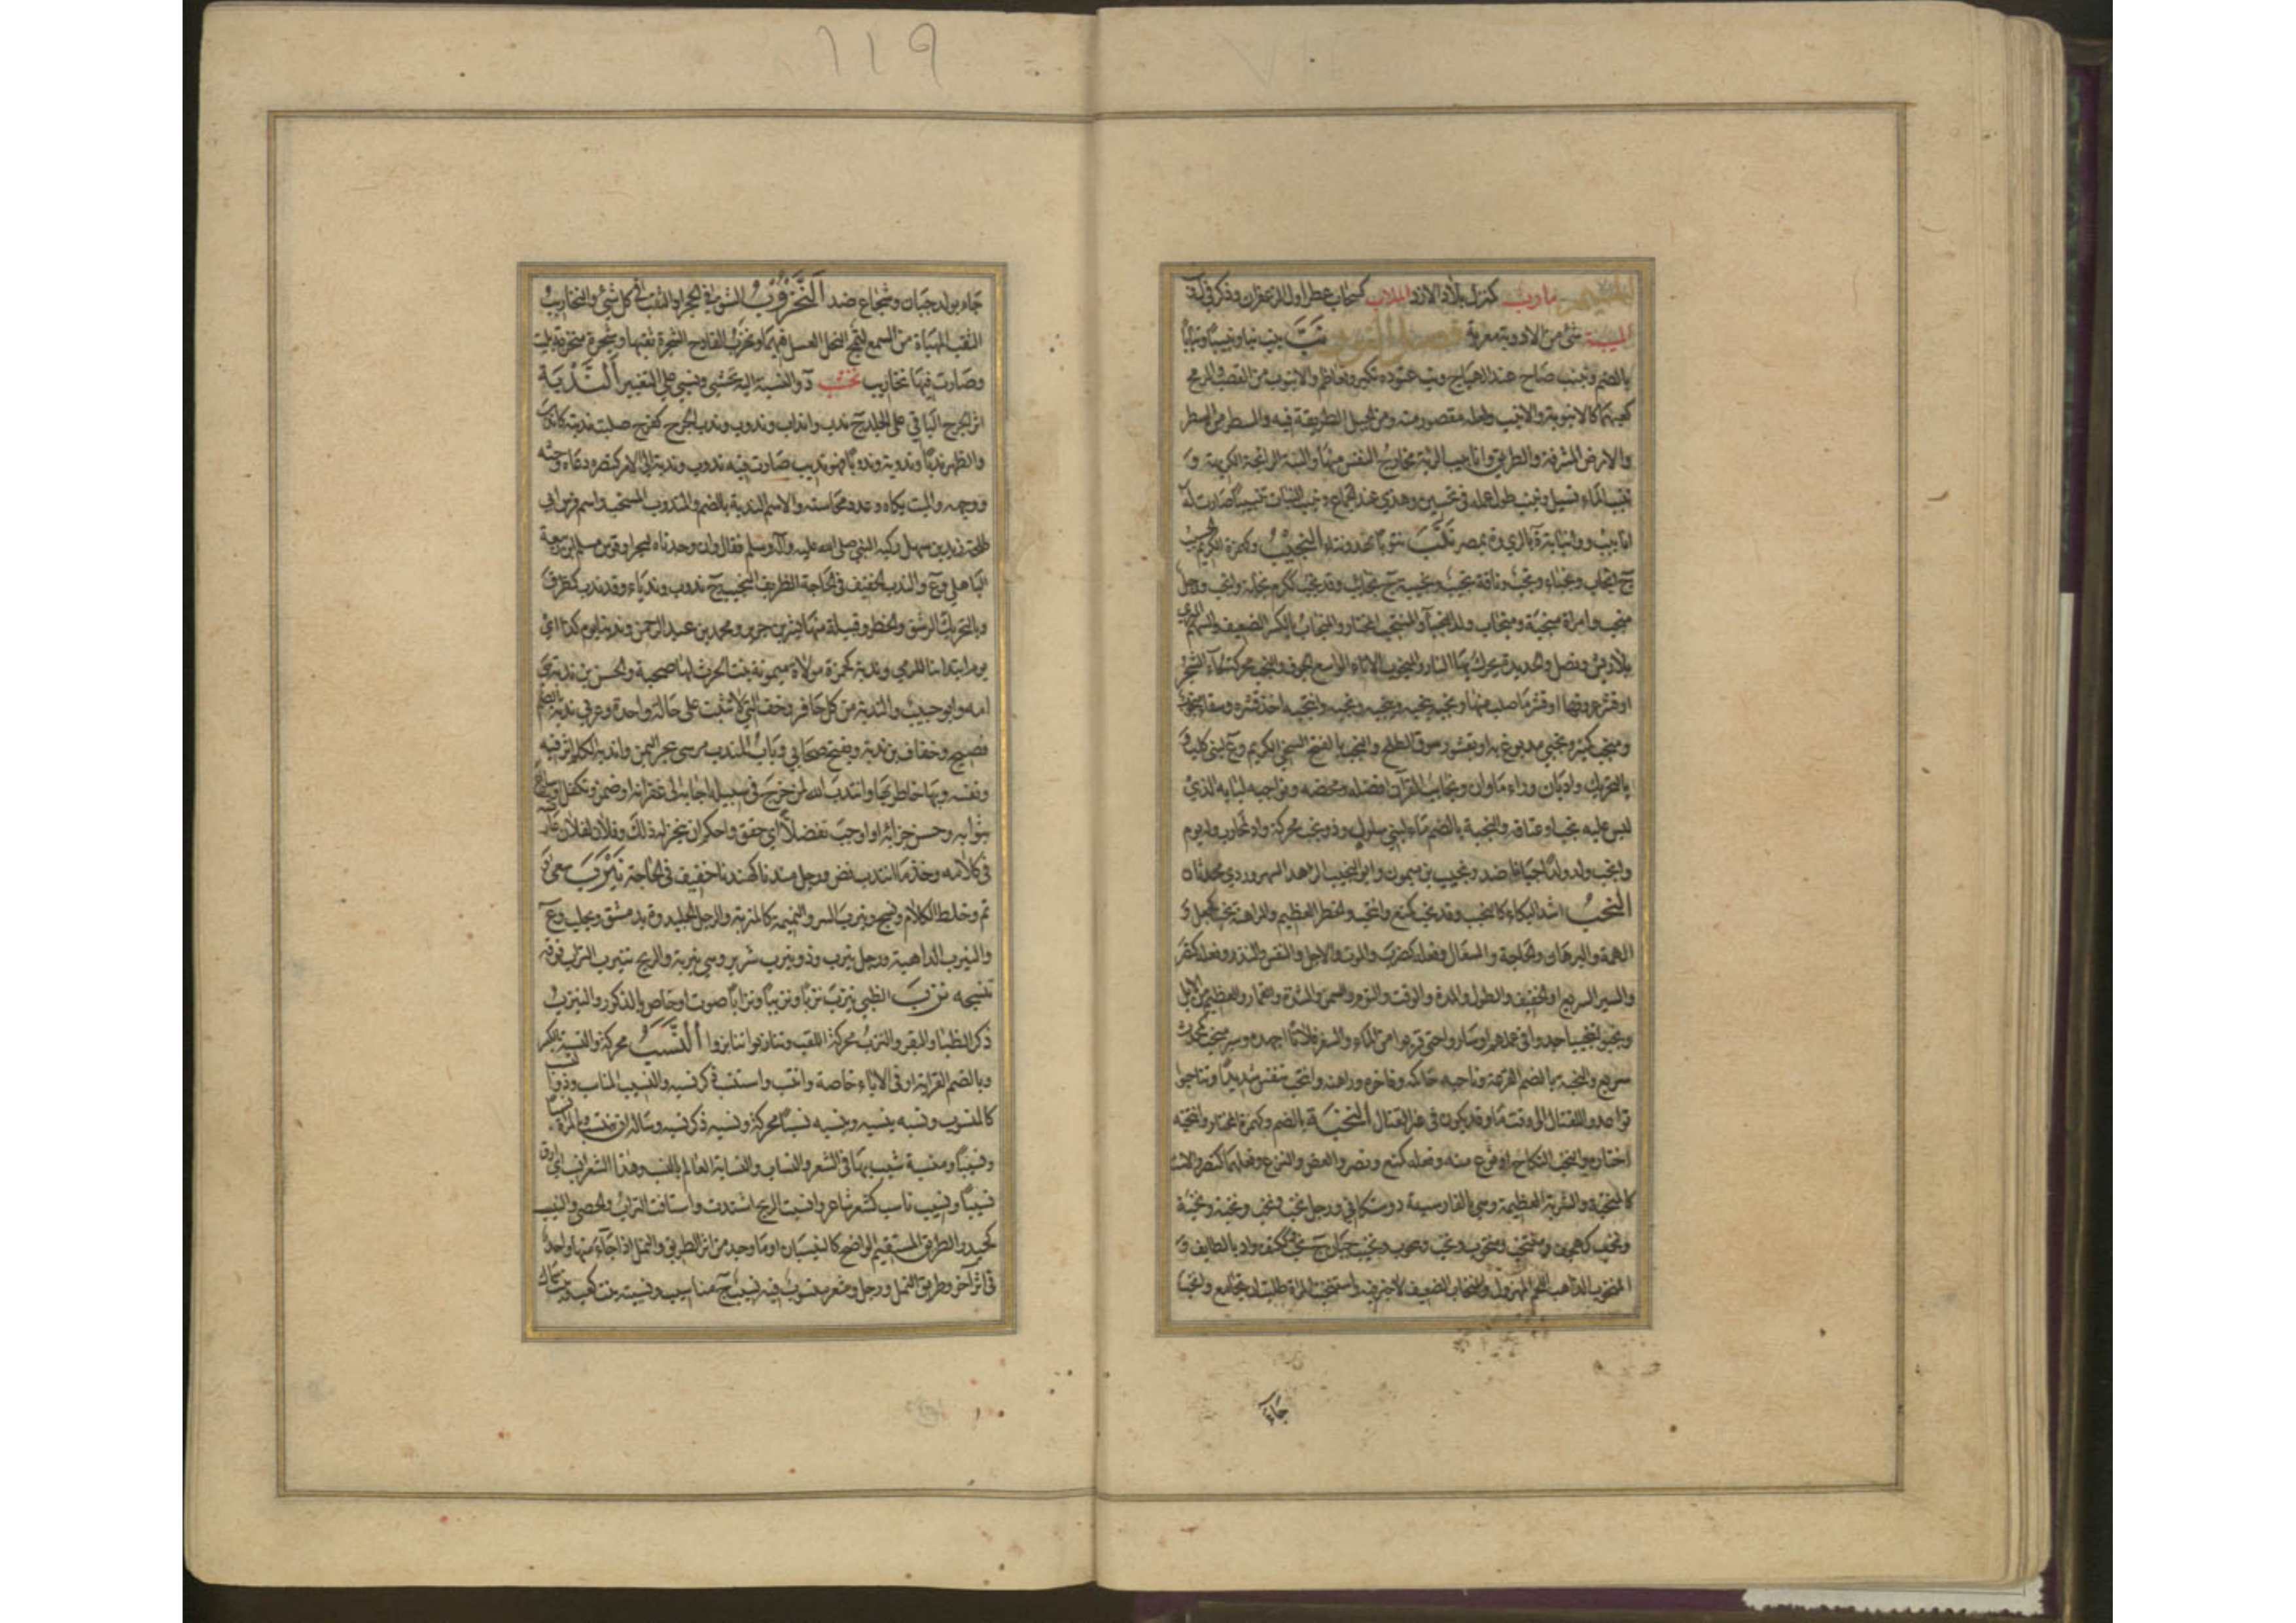 مأرب كمنزل بلاد الازد الملاب كسحاب عطر او الزعفران وذكر في ل
الميبة شئ من الادوية معربة فصل النون نب ينب نبا ونبيبا ونبابا
بالضم ونبنب صاح عند الهياج ونب عتوده تكبر وتعاظم والانبوب من القصب والرمح
كعبهما كالانبوبة والانبب ولعله مقصور منه ومن الجبل الطريقة فيه والسطر من الشجر
والارض المشرفة والطريق وانابيب الرئة مخارج النفس منها والنبة الرائحة الكريهة و
الماء تسيل ونبنب طول عمله في تحسين وهذى عند الجماع ونبب النبات تنبيبا صارت له
انابيب ة بالري وة بمصر نتب نتوبا نهد ونتا النجيب وكهمزة الكريم الحسيب
ج انجاب ونجباء ونجب وناقة نجيب ونجيبة ج نجائب وقد نجب ككرم نجابة وانجب ورجل
منجب وامراة منجبة ومنجاب ولدا النجباء والمنتجب المختار والمنجاب بالكسر الضعيف والسهم المبري
بلا ريش ونصل والحديدة يحرك بها النار والمنجوب الاناء الواسع الجوف والنجب محركة لحاء الشجر
او قشر عروقها او قشر ما صلب منها ونجبه ينجبه وينجبه ونجبه وانتجبه اخذ قشره وسقاء منجوب
ومنجب كمنبر ونجبي مدبوغ به او بقشور سوق الطلح والنجب بالفتح السخي الكريم وع لبني كلاب و
بالتحريك واديان وراء ماوان ونجائب القرآن افضله ومحضه ونواجبه لبابه الذي
ليس عليه نجب او عتاقه والنجبة بالضم ماء لبني سلول وذو نجب محركة واد لمحارب وله يوم
وانجب ولد ولدا جبانا ضد ونجيب بن ميمون وابو النجيب الزاهد السهروردي محدثان
النحب اشد البكاء كالنحيب وقد نحب كمنع وانتحب والخطر العظيم والمراهنة نحب كجعل و
الهمة والبرهان والحاجة والسعال وفعله كضرب والموت والاجل والنفس والنذر وفعله كنصر
والسير السريع او الخفيف والطول والمدة والوقت والنوم والسمن والشدة والقمار والعظيم من الابل
ونحبوا تنحيبا جدوا في عملهم او ساروا حتى قربوا من الماء والسفر فلانا اجهده وسير منحب كمحدث
سريع والنحبة بالضم القرعة وناحبه حاكمه وفاخره وراهنه وانتحب تنفس شديدا وتناحبوا
تواعدوا للقتال الى وقت ما وقد يكون في غير القتال النخبة بالضم وكهمزة المختار وانتخبه
اختاره والنخب النكاح او نوع منه وفعله كمنع ونصر والعض والنزع وفعلهما كنصر والاست
كالمنخبة والشربة العظيمة وهي بالفارسية دوستكاني ورجل نخب ونخب ونخبة ونخبة
ونخب كهجف ومنتخب ومنخوب ونخب وينخوب ونخيب جبان ج نخب وككتف واد بالطايف و
المنخوب الذاهب اللحم المهزول والمنخاب الضعيف لا خير فيه واستنخبت المراة طلبت ان تجامع وانخب
جاء
جاء بولد جبان وشجاع ضد النخروب الشق في الحجر او الثقب في كل شئ والنخاريب
الثقب المهياة من الشمع لتمج النحل العسل فيها ونخرب القادح الشجرة ثقبها وشجرة منخربة بليت
وصارت فيها نخاريب نخشب د والنسبة اليه نخشبي ونسفي على التغيير الندبة
اثر الجرح الباقي على الجلد ج ندب وانداب وندوب وندب الجرح كفرح صلبت ندبته كاندب
والظهر ندبا وندوبة وندوبا فهو نديب صارت فيه ندوب وندبه الى الامر كنصره دعاه وحثه
ووجهه والميت بكاه وعدد محاسنه والاسم الندبة بالضم والمندوب المستحب واسم فرس ابي
طلحة زيد بن سهل ركبه النبي صلى الله عليه وآله وسلم فقال وان وجدناه لبحرا وفرس مسلم بن ربيعة
الباهلي وع والندب الخفيف في الحاجة الظريف النجيب ج ندوب وندباء وقد ندب كظرف
وبالتحريك الرشق والخطر وقبيلة منها بشر بن حرب ومحمد بن عبد الرحمن وندبنا يوم كذا اي
يوم ابتدائنا للرمي وندبة كحمزة مولاة ميمونة بنت الحرث لها صحبة والحسن بن ندبة وهي
امه وابو حبيب والندبة من كل حافر وخف التي لا تثبت على حالة واحدة وعربي ندبة بالضم
فصيح وخفاف بن ندبة ويفتح صحابي وباب المندب مرسى ببحر اليمن واندبه الكلم اثر فيه
ونفسه وبها خاطر بها وانتدب الله لمن خرج في سبيله اجابه الى غفرانه او ضمن وتكفل او سارع
بثوابه وحسن جزائه او اوجب تفضلا اي حقق واحكم ان ينجز له ذلك وفلان لفلان عارضه
في كلامه وخذ ما انتدب نض ورجل مندبا كهندبا خفيف في الحاجة نيرب سعى و
نم وخلط الكلام ونسج ونيرب السر والنميمة كالنيربة والرجل الجليد وة بدمشق وبحلب وع
والنيرب الداهية ورجل نيرب وذو نيرب شرير وهي نيربة والريح تنيرب التراب فوقه
تنسجه نزب الظبي ينزب نزبا ونزيبا ونزابا صوت او خاص بالذكور والنيزب
ذكر الظباء والبقر والنزب محركة اللقب وتنازبوا تنابزوا النسب محركة والنسبة بالكسر
وبالضم القرابة او في الاباء خاصة وانتسب واستنسب ذكر نسبه والنسيب المناسب وذو النسب
كالمنسوب ونسبه ينسبه وينسبه نسبا محركة ونسبة ذكر نسبه وساله ان ينتسب وبالمراة نسبا
ونسيبا ومنسبة شبب بها في الشعر والنساب والنسابة العالم بالنسب وهذا الشعر انسب اي ارق
نسيبا ونسيب ناسب كشعر شاعر وانسبت الريح اشتدت واستافت التراب والحصى والنيسب
كحيدر الطريق المستقيم الواضح كالنيسبان او ما وجد من اثر الطريق والنمل اذا جاء منها واحد
في اثر آخر وطريق للنمل ورجل وشعر منسوب فيه نسيب ج مناسيب ونسيبة بنت كعب وبنت سماك